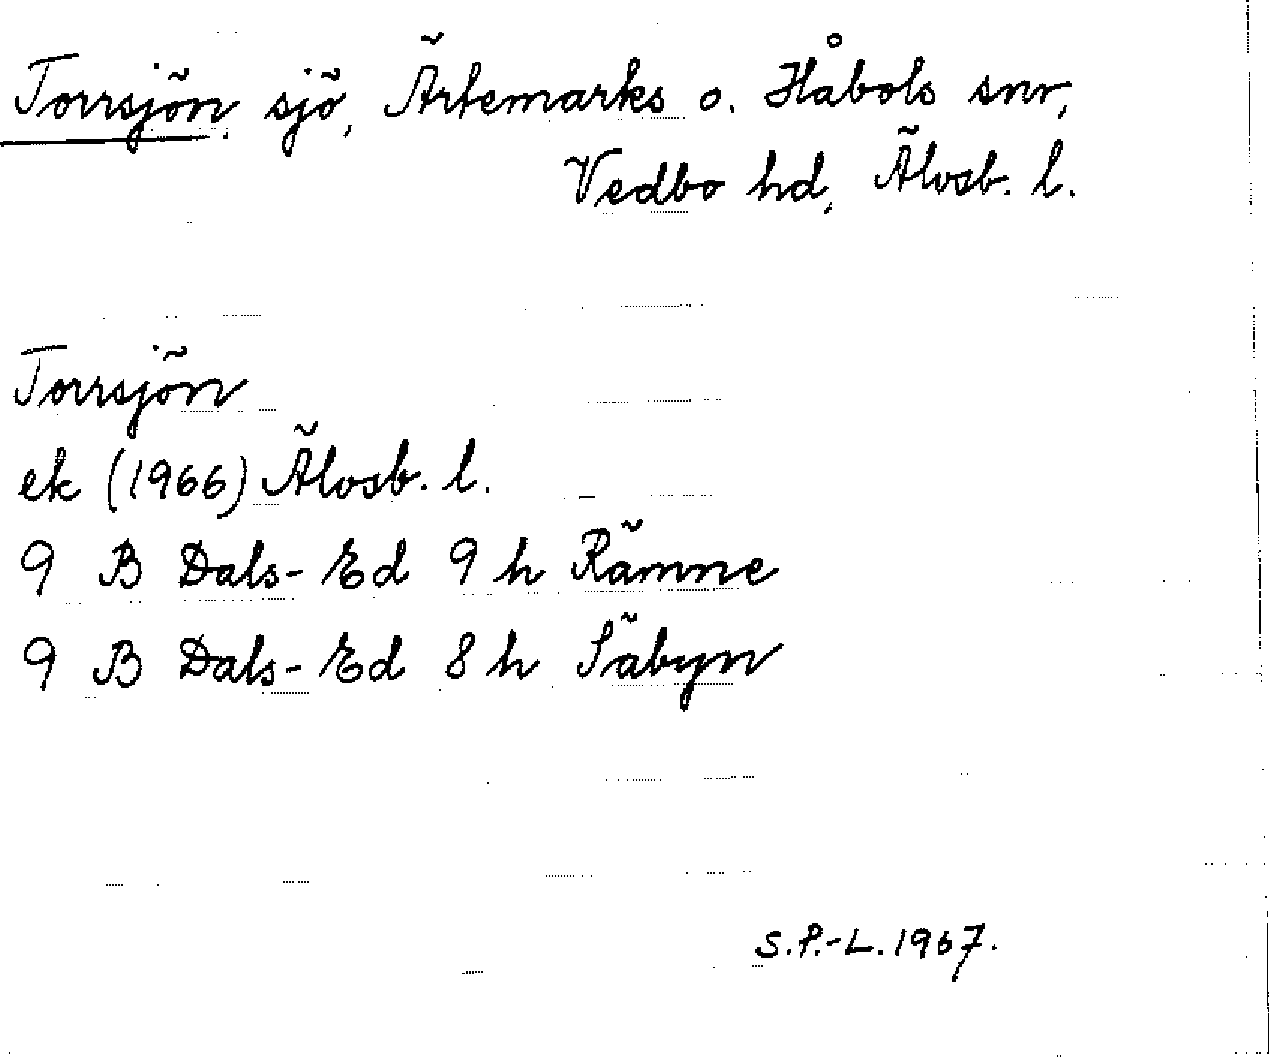 Torrsjön, sjö, Ärtemarks o. Håbols snr,
Vedbo hd, Älvsb. l.
Torrsjön
ek (1966) Älvsb. l.
9 B Dals-Ed 9 h Rämne
9 B Dals-Ed 8 h Säbyn
S.P.-L. 1967.